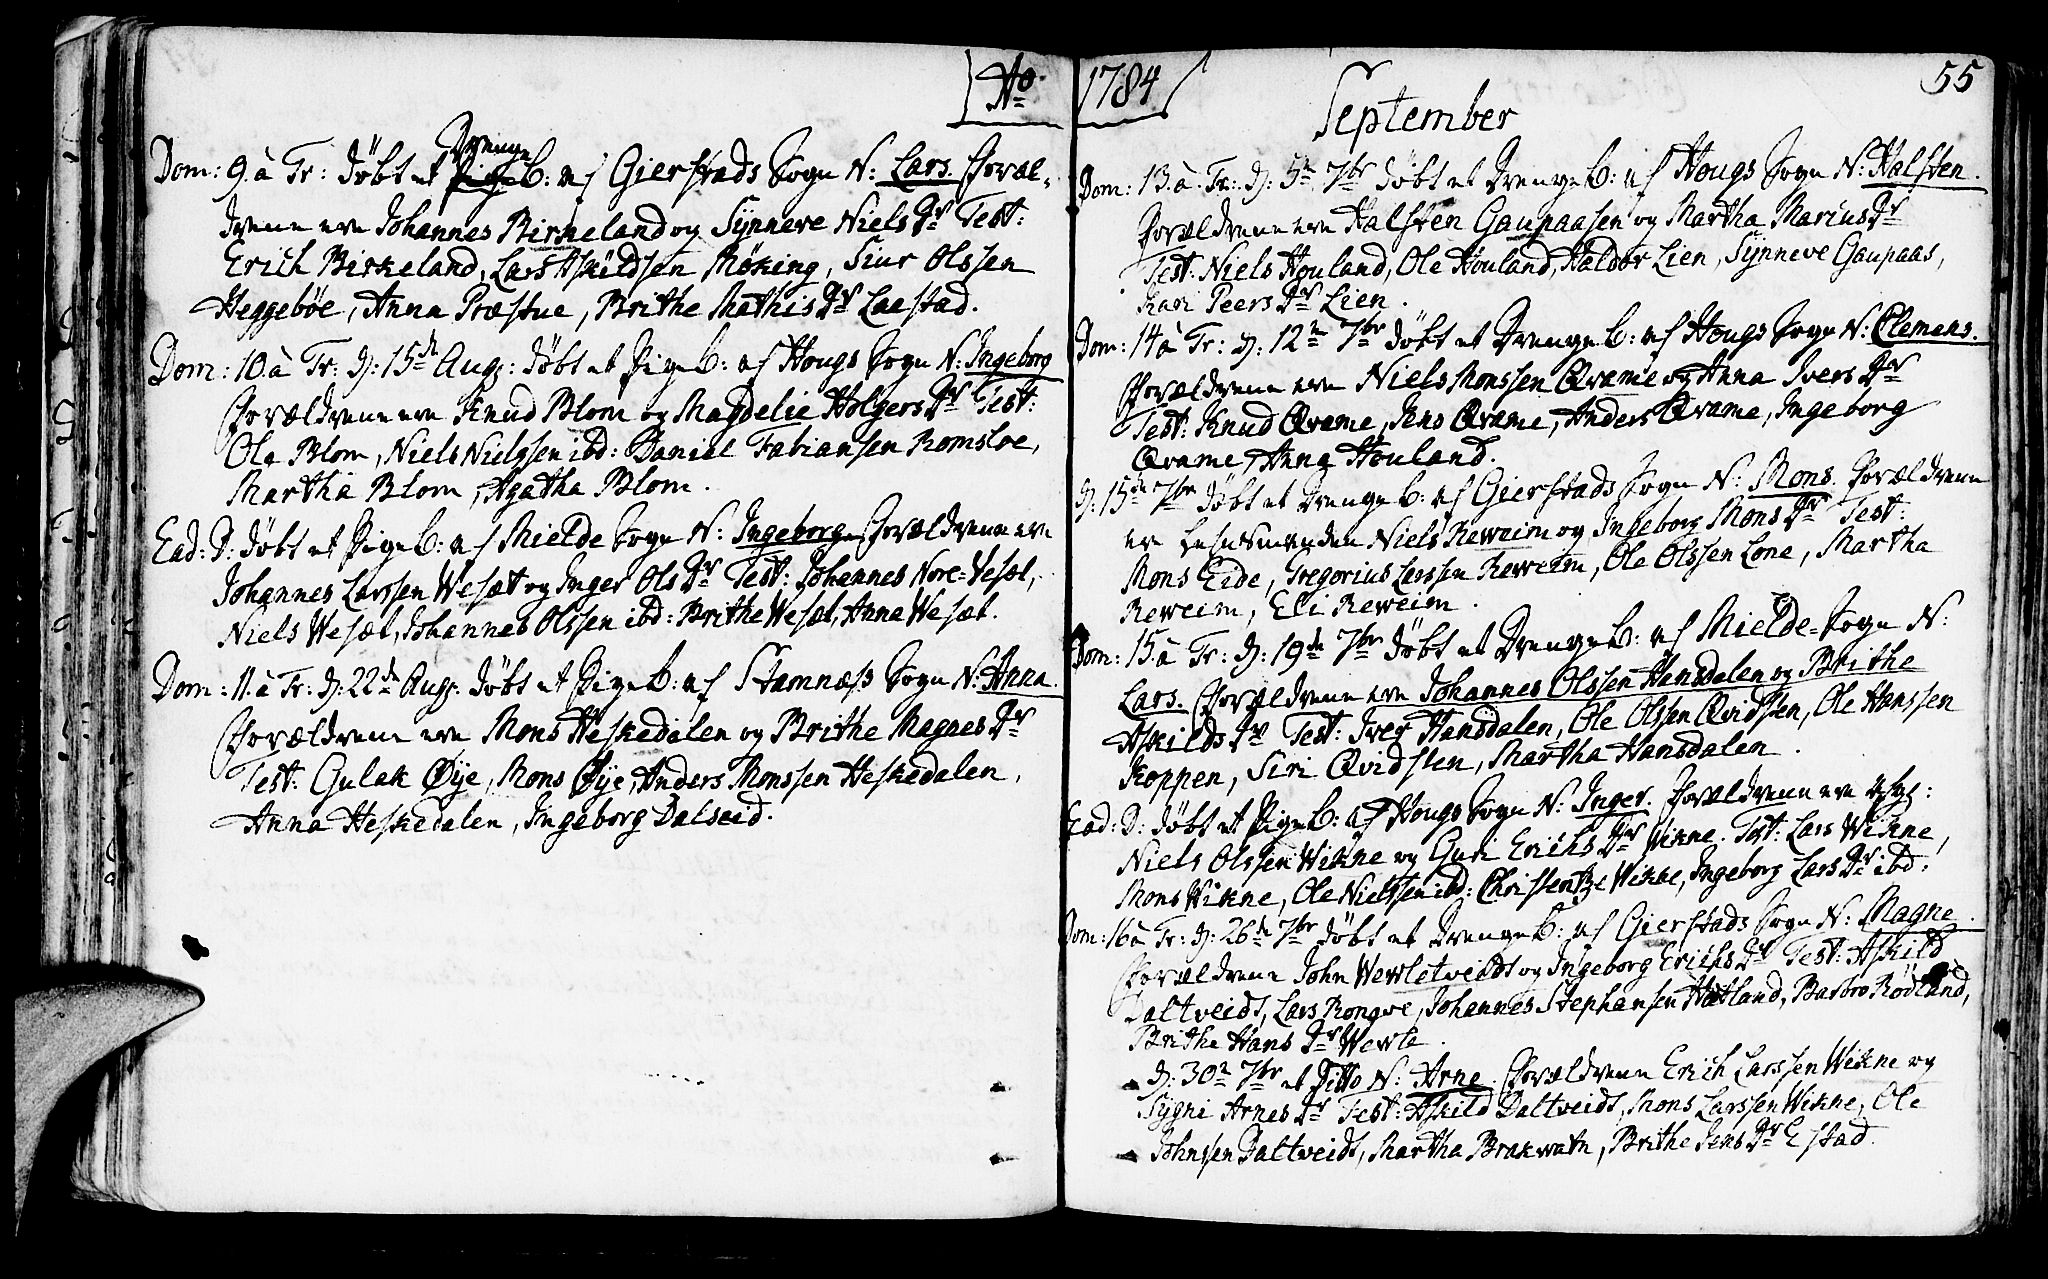 Ao. 1784
Dom: 9. à Tr: döbt et Drenge B: af Gierstads Sogn N: Lars. Foræl-
drene ere Johannes Birkeland og Synneve Niels Dr Test:
Erich Birkeland, Lars Askildsen Möking, Siur Olssen
Heggeböe, Anna Præstue, Brithe Mathis Dr Laestad.
Dom: 10. à Tr: d: 15de Aug: döbt et Pige B: af Hougs Sogn N: Ingeborg
Forældrene ere Knud Blom og Magdelie Holgers Dr Test:
Ole Blom, Niels Nielssen ibd: Daniel Fabiansen Romsloe,
Martha Blom, Agatha Blom.
Ead: D: döbt et Pige B: af Mielde Sogn N: Ingeborg, Forældrene ere
Johannes Larssen Wesæt og Inger Ols Dr Test: Johannes Nore-Vesæt,
Niels Wesæt, Johannes Olssen ibd: Brithe Wesæt, Anna Wesæt.
Dom: 11. à Tr: d: 22de Aug: döbt et Pige B: af Stamnæss Sogn N: Anna.
Forældrene ere Mons Heskedalen og Brithe Magnes Dr
Test: Gulak Øye, Mons Øye, Anders Monssen Heskedalen,
Anna Heskedalen, Ingeborg Dalseid.
55
September
Dom: 13. à Tr: d: 5te 7br döbt et Drenge B: af Hougs Sogn N: Halsten.
Forældrene ere Halsten Gaupaasen og Martha Marius Dr
Test: Niels Houland, Ole Houland, Haldor Lien, Synneve Gaupaas,
Kari Peers Dr Lien.
Dom: 14 à Tr: d: 12te 7br döbt et Drenge B: af Hougs Sogn N: Clemens.
Forældrene ere Niels Monssen Qvame og Anna Ivers Dr
Test: Knud Qvame, Jens Qvame, Anders Qvame, Ingeborg
Qvame, Anna Houland.
d: 15de 7br döbt et Drenge B: af Gierstads Sogn N: Mons. Forældrene
ere Lehnsmanden Niels Reweim og Ingeborg Mons Dr Test:
Mons Eide, Gregorius Larssen Reweim, Ole Olssen Lone, Martha
Reweim, Eli Reweim.
Dom: 15. à Tr: d: 19de 7br döbt et Drenge B: af Mielde-Sogn N:
Lars. Forældrene ere Johannes Olssen Hansdalen og Brithe
Askilds Dr Test: Iver Hansdalen, Ole Olssen Qvidsten, Ole Hanssen
Koppen, Siri Qvidsten, Martha Hansdalen.
Ead: D: döbt et Pige B: af Hougs Sogn N: Inger. Forældrene ere
Niels Olssen Wikne og Guri Erichs Dr Wikne. Test: Lars Wikne,
Mons Wikne, Ole Nielssen ibd: Christentze Wikne, Ingeborg Lars Dr ibd:
Dom: 16 à Tr: d: 26de 7br döbt et Drenge B: af Gierstads Sogn N: Magne.
Forældrene John Wewletveidt og Ingeborg Erichs Dr Test: Askild
Daltveidt, Lars Rongve, Johannes Stephansen Hætland, Barbro Rödland,
Brithe Hans Dr Wewle.
d: 30te 7br et Ditto N: Arne. Forældrene Erich Larssen Wikne og
Sygni Arnes Dr Test: Askild Daltveidt, Mons Larssen Wikne, Ole
Johnssen Daltveidt, Martha Brakwatn, Brithe Jens Dr Estad.